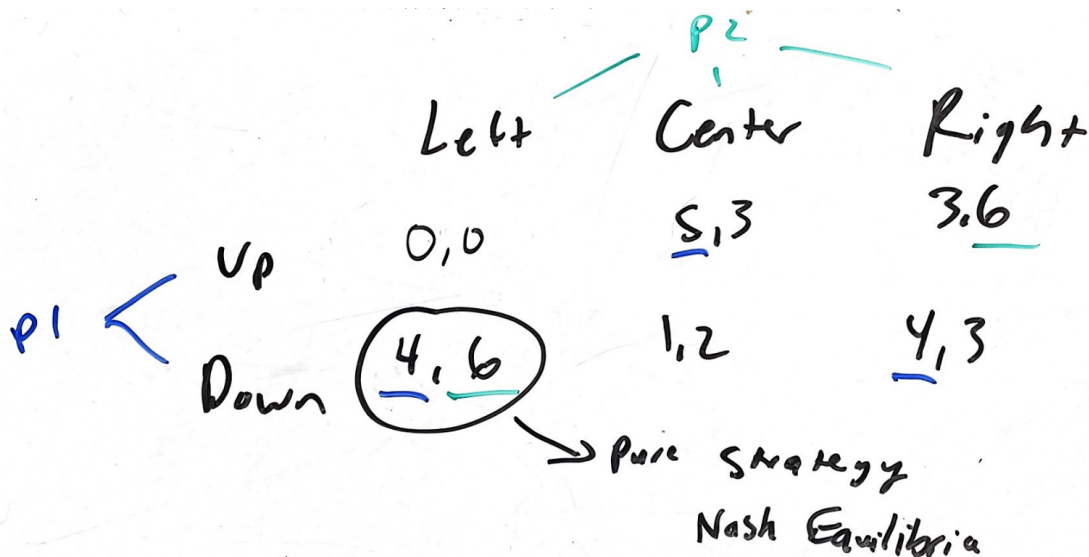 P2
Left Center Right
Up 0,0 5,3 3,6
P1
Down 4,6 1,2 4,3
Pure Strategy
Nash Equilibria